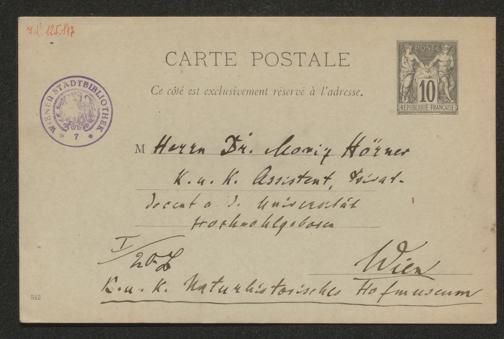 J.N. 125.117
CARTE POSTALE
Ce côté est exclusivement réservé à l'adresse.
POSTE
10
RÉPUBLIQUE FRANÇAISE
WIENER STADTBIBLIOTHEK
* 7 *
M Herrn Dr. Moriz Hörnes
K. u. K. Assistent, Privat-
docent a. d. Universität
Hochwohlgeboren
I/
Wien
K. u. K. Naturhistorisches Hofmuseum